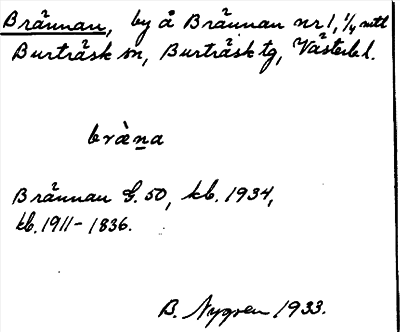 Brännan, by å Brännan nr 1, 1/4 mtl
Burträsk sn, Burträsk tg, Västerb. l.
bræ̀na
Brännan G. 50, kb. 1934,
kb. 1911-1836.
B. Nygren 1933.